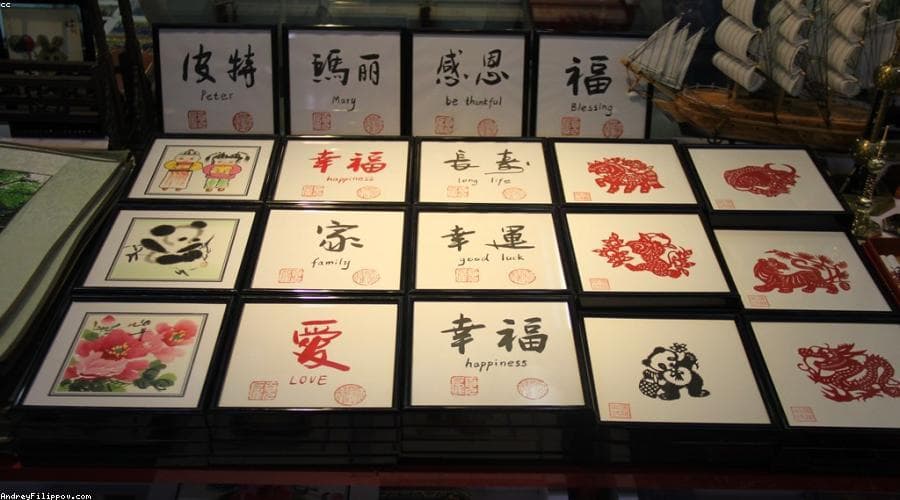 cc
皮特
Peter
瑪丽
Mary
感恩
be thankful
福
Blessing
幸福
happiness
長寿
long life
家
family
幸運
good luck
愛
LOVE
幸福
happiness
AndreyFilippov.com